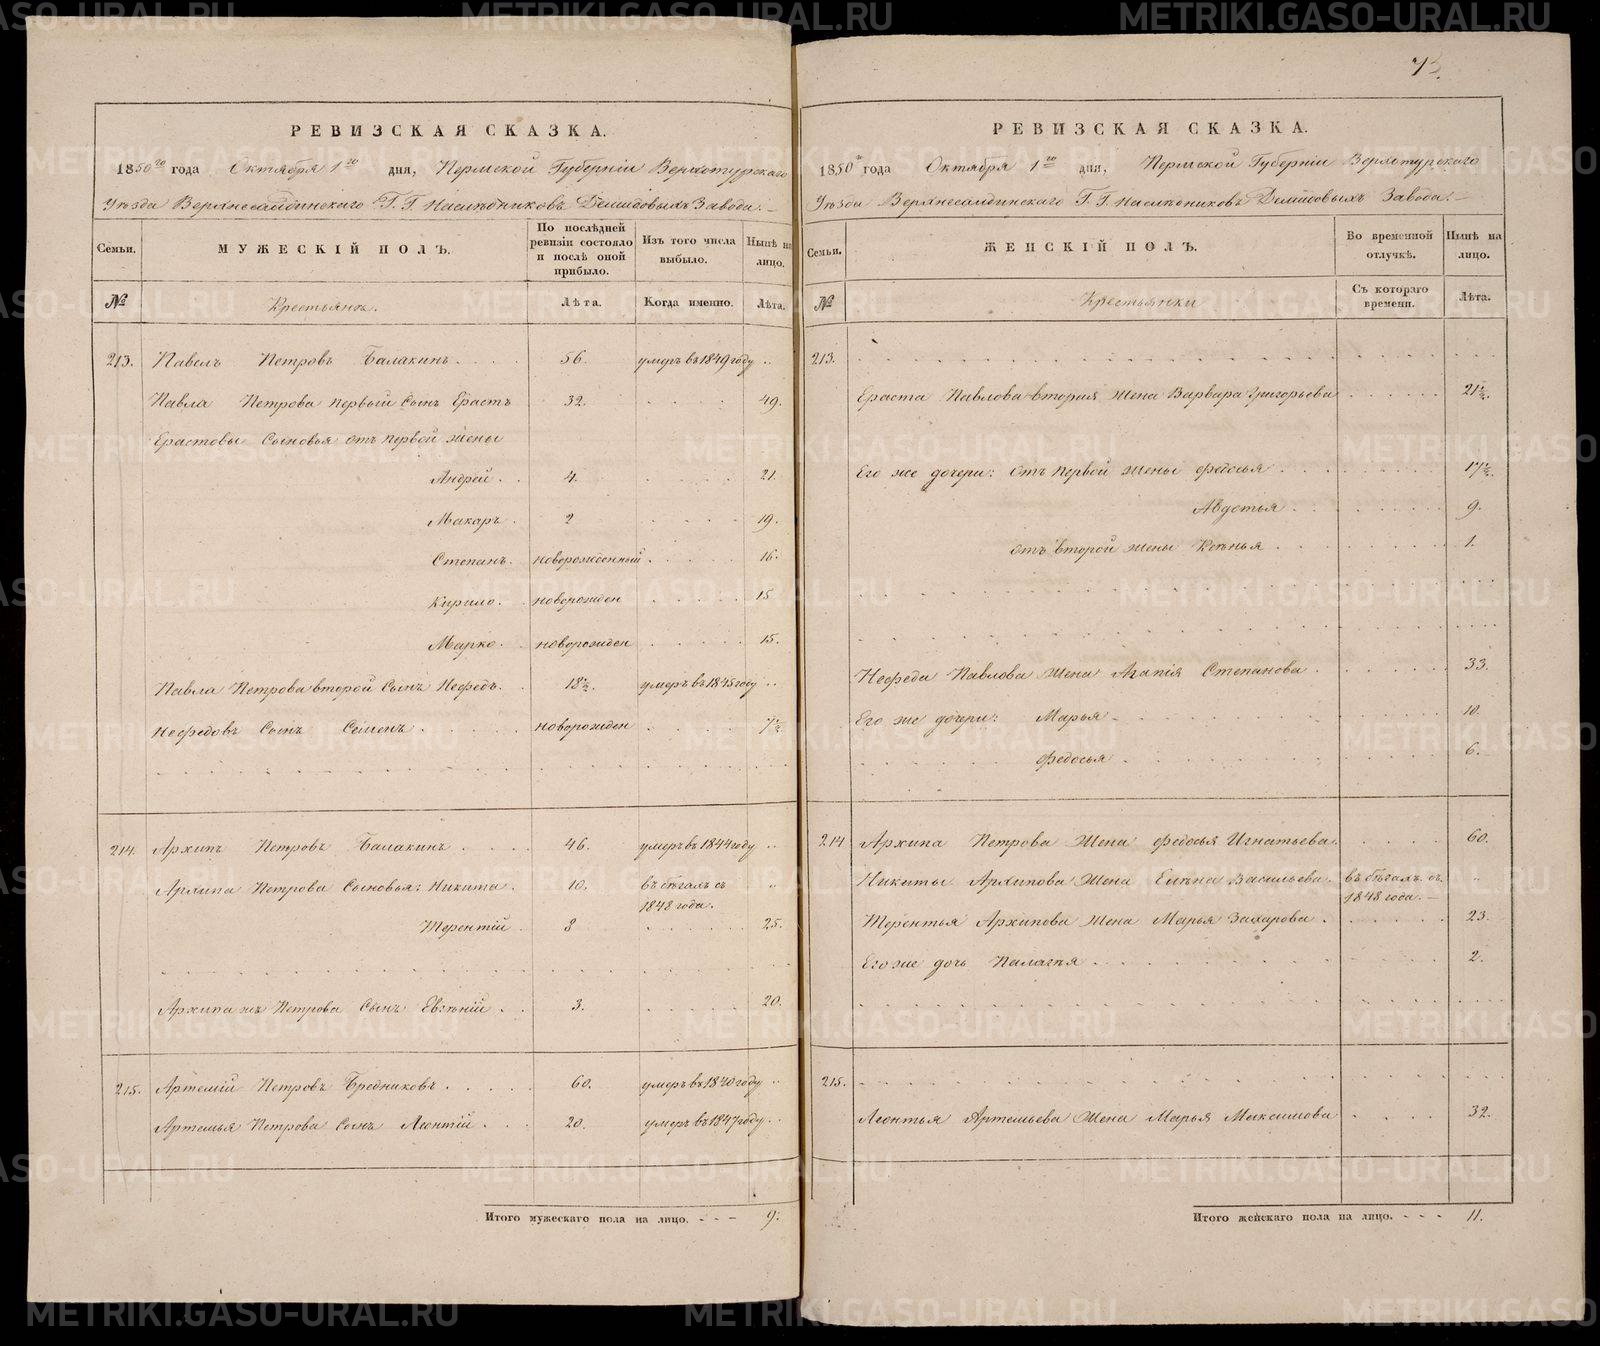 73.
РЕВИЗСКАЯ СКАЗКА.
1850го года Октября 1го дня, Пермской Губерніи Верхотурскаго
Уѣзда Верхнесалдинскаго Г.Г. Наслѣдниковъ Демидовыхъ Завода.
Семьи.
МУЖЕСКІЙ ПОЛЪ.
По послѣдней ревизіи состояло и послѣ оной прибыло.
Изъ того числа выбыло.
Нынѣ на лицо.
№
Крестьянъ.
Лѣта.
Когда именно.
Лѣта.
213. Павелъ Петровъ Балакинъ 56. умеръ въ 1849 году
Павла Петрова первый сынъ Ерастъ 32. 49.
Ерастовы Сыновья отъ первой жены
Андрей 4. 21.
Макаръ 2 19.
Степанъ новорожденный 16.
Кирило новорожден 15
Марко новорожден 15.
Павла Петрова второй Сынъ Нефедъ 18½. умеръ въ 1845 году
Нефедовъ Сынъ Семенъ новорожден 7½
214. Архипъ Петровъ Балакинъ 46. умеръ въ 1844 году
Архипа Петрова Сыновья: Никита 10. въ бѣгахъ съ
1848 года.
Терентій 8 25.
Архипа жъ Петрова Сынъ Евгеній 3. 20.
215. Артемій Петровъ Бредниковъ 60. умеръ въ 1840 году
Артемья Петрова сынъ Леонтій 20. умеръ въ 1847 году
Итого мужескаго пола на лицо. 9.
РЕВИЗСКАЯ СКАЗКА.
1850го года Октября 1го дня, Пермской Губерніи Верхотурскаго
Уѣзда Верхнесалдинскаго Г.Г. Наслѣдниковъ Демидовыхъ Завода.
Семьи.
ЖЕНСКІЙ ПОЛЪ.
Во временной отлучкѣ.
Нынѣ на лицо.
№
Крестьянки
Съ котораго времени.
Лѣта.
213.
Ераста Павлова вторая жена Варвара Григорьева 21½.
Его же дочери: отъ первой жены Федосья 17½.
Авдотья 9.
отъ второй жены Ксѣнья 1.
Нефеда Павлова жена Агапія Степанова 33.
Его же дочери: Марья 10.
Федосья 6.
214 Архипа Петрова Жена Федосья Игнатьева 60.
Никиты Архипова Жена Елѣна Васильева въ бѣгахъ съ
1848 года.
Терентья Архипова Жена Марья Захарова 23.
Его же дочь Палагѣя 2.
215.
Леонтья Артемьева Жена Марья Максимова 32.
Итого женскаго пола на лицо. 11.
METRIKI.GASO-URAL.RU